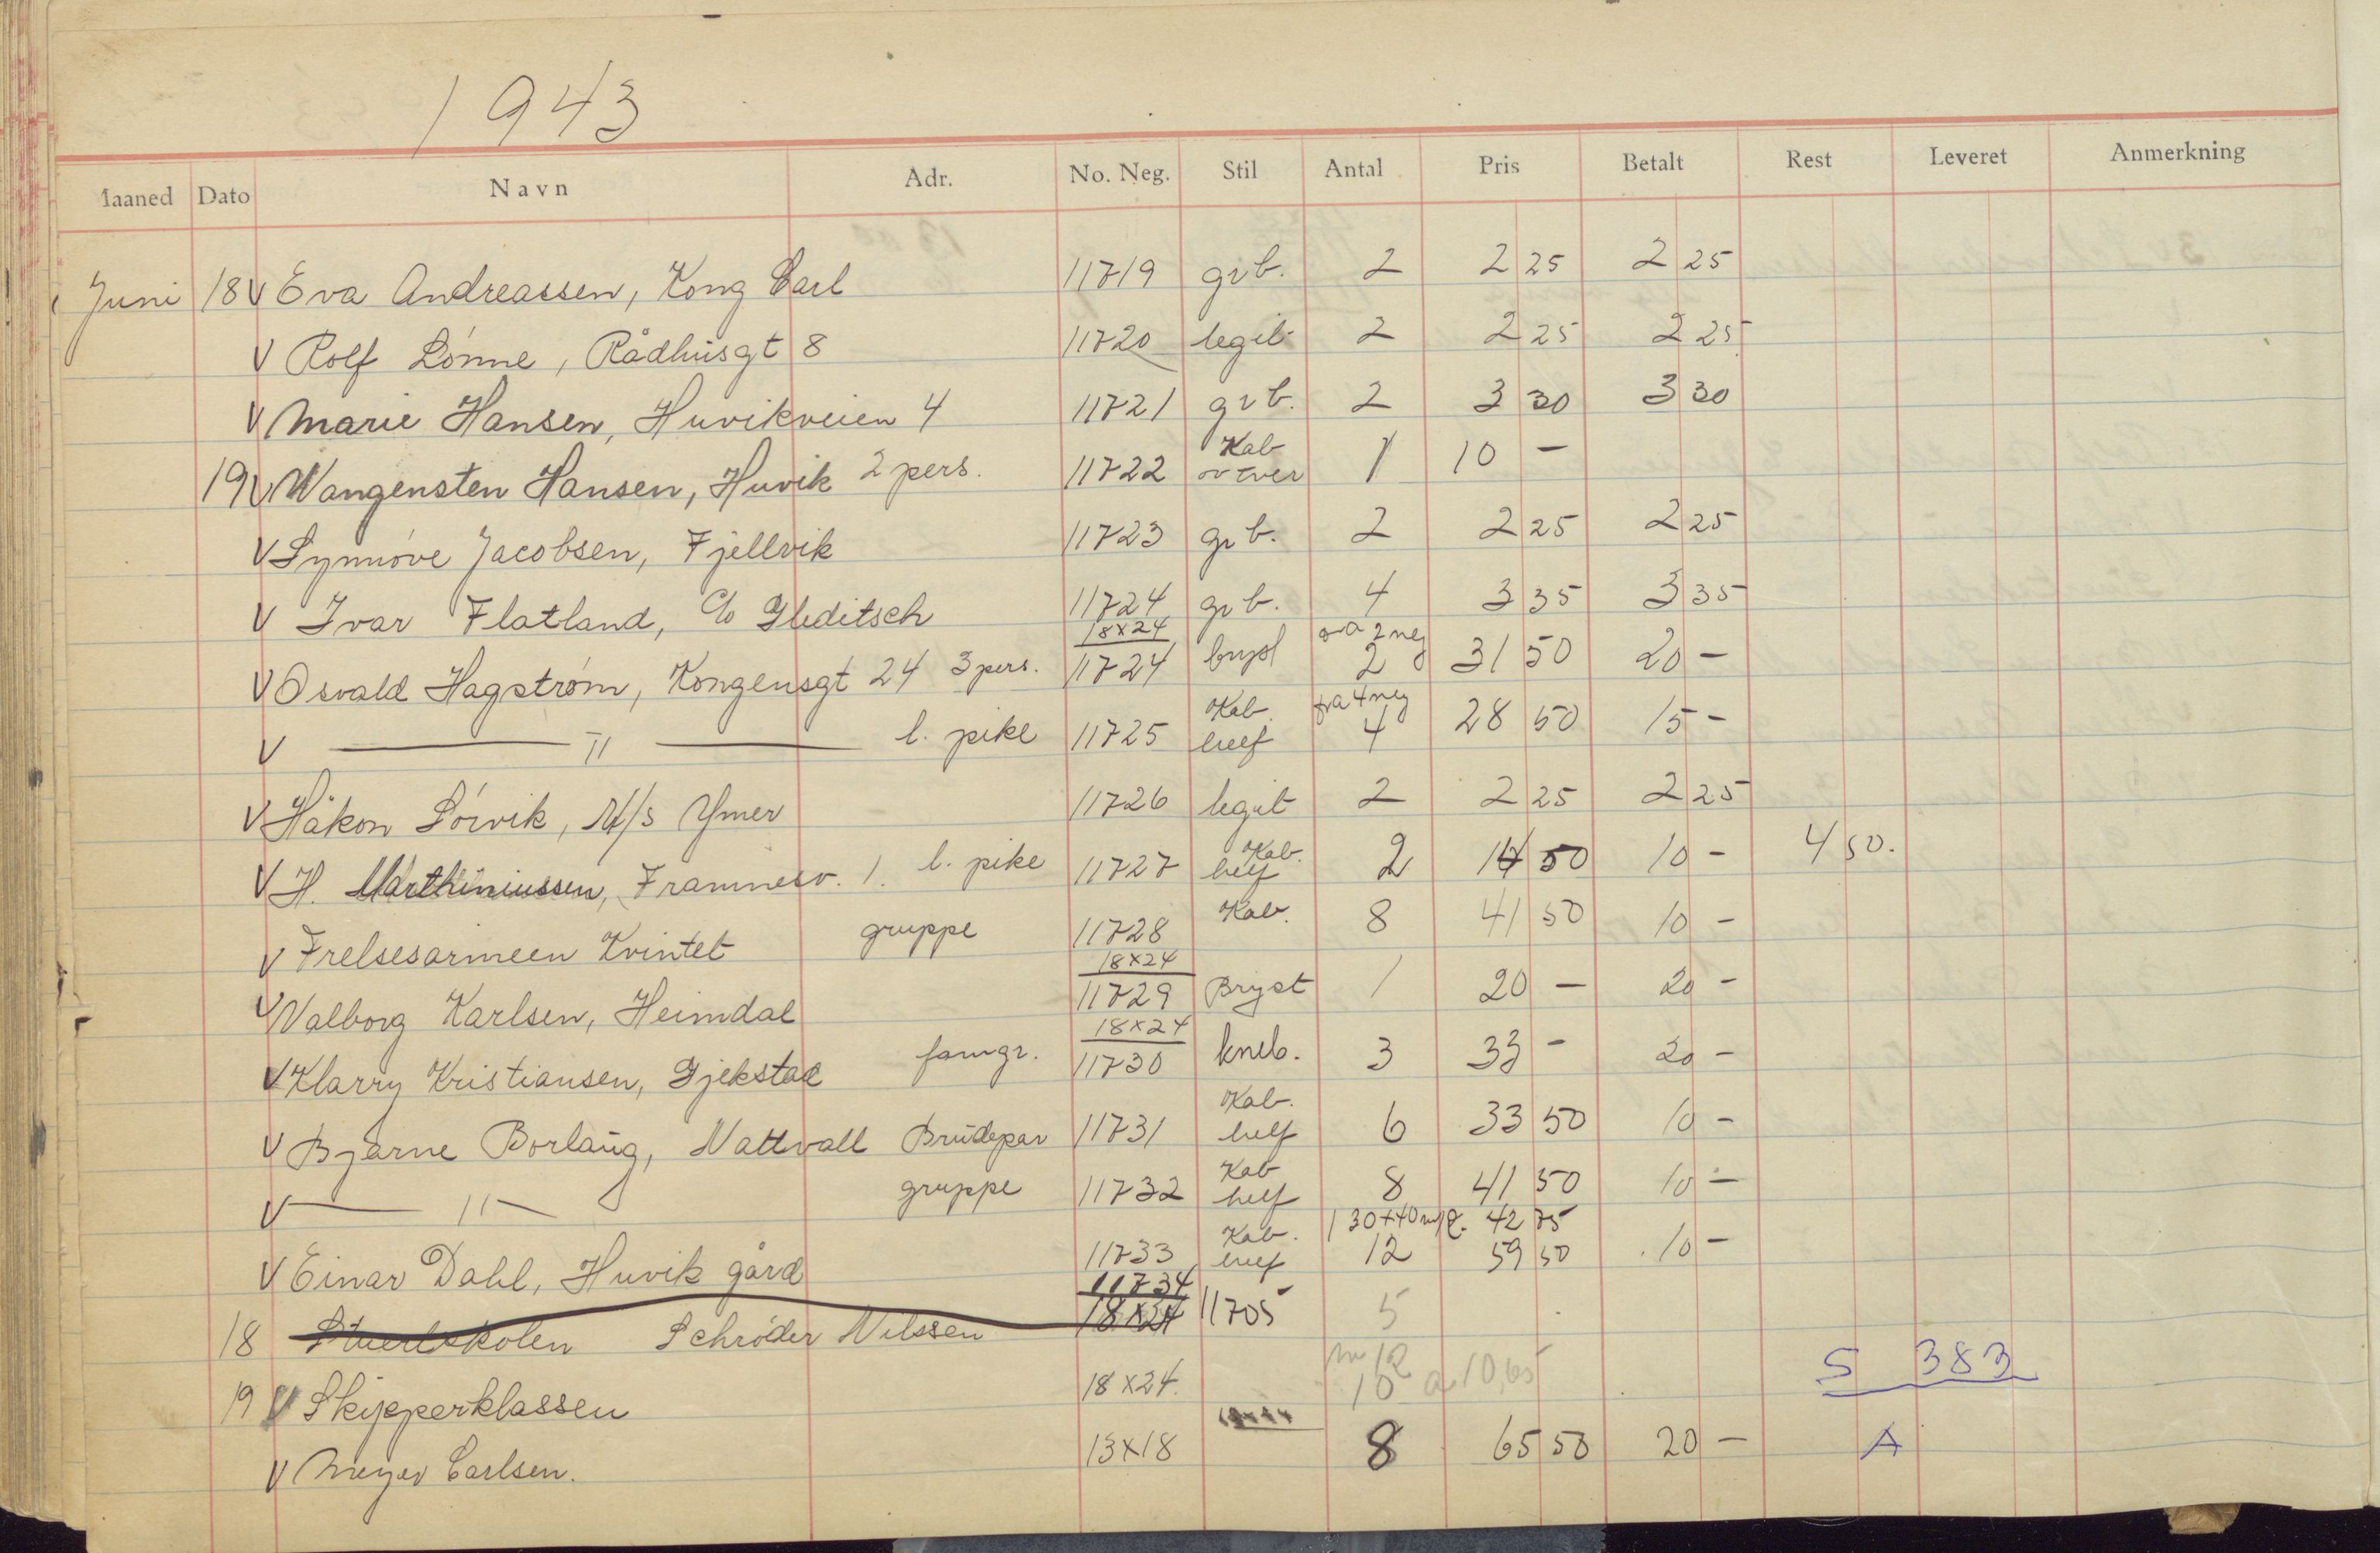 1943
Maaned Dato Navn Adr. No. Neg. Stil Antal Pris Betalt Rest Leveret Anmerkning
Juni 18 V Eva Andreassen, Kong Carl 11719 grb. 2 2 25 2 25
V Rolf Lönne, Rådhusgt 8 11720 legit 2 2 25 2 25
V Marie Hansen, Huvikveien 4 11721 grb. 2 3 30 3 30
19 V Wangensten Hansen, Huvik 2 pers. 11722 Kab 1 10 -
V Synnöve Jacobsen, Fjellvik 11723 grb. 2 2 25 2 25
V Ivar Flatland, c/o Gleditsch 11724 grb. 4 3 35 3 35
18x24 2 neg
V Osvald Hagström, Kongensgt 24 3 pers. 11724 bryst 2 31 50 20 -
Kab. fra 4 neg
V — " — l. pike 11725 helf 4 28 50 15 -
V Håkon Sörvik, M/s Ymer 11726 legit 2 2 25 2 25
V H. Marthiniussen, Framnesv. 1. l. pike 11727 Kab. helf 2 14 50 10 - 4 50.
V Frelsesarmeen Kvintet gruppe 11728 Kab. 8 41 50 10 -
18x24
V Valborg Karlsen, Heimdal 11729 Bryst 1 20 - 20 -
18x24
V Klarry Kristiansen, Gjekstad famgr. 11730 kneb. 3 33 - 20 -
V Bjarne Borlaug, Nattvall Brudepar 11731 Kab. helf 6 33 50 10 -
V — " — gruppe 11732 Kab helf 8 41 50 10 -
42 75
V Einar Dahl, Huvik gård 11733 Kab. helf 12 59 50 10 -
11734
18 Schröder Nilssen 18x24 11705 5
12
19 V Skipperklassen 18x24. 10 a 10,65 S 383
V Meyer Carlsen. 13x18 8 65 50 20 - A